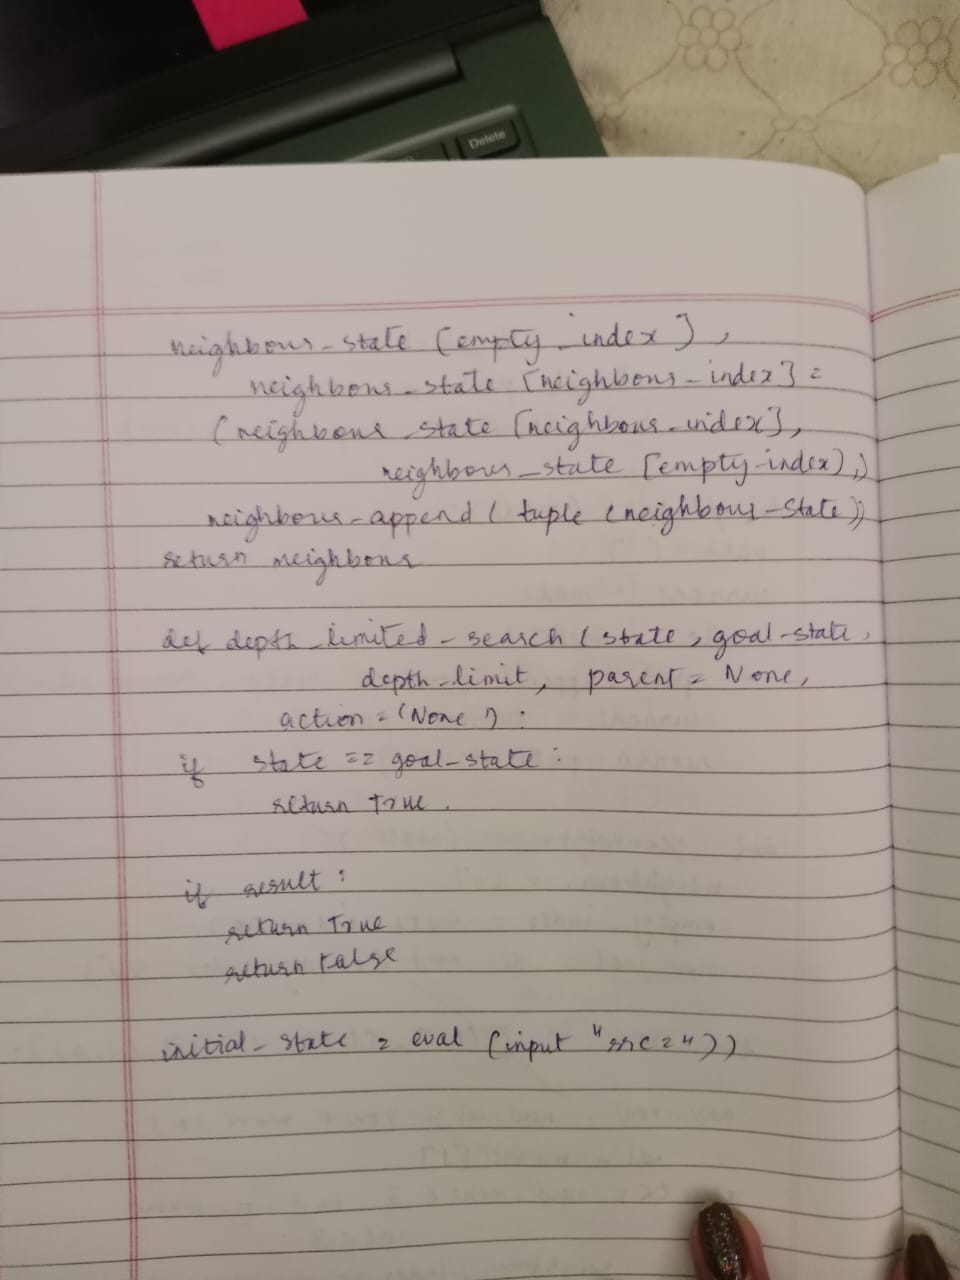 Delete
neighbour_state [empty_index],
neighbour_state [neighbour_index] =
(neighbour_state [neighbour_index],
neighbour_state [empty_index),)
neighbour_append ( tuple (neighbour_state))
return neighbour
def depth_limited_search (state, goal_state,
depth_limit, parent = None,
action = (None ) :
if state == goal_state :
return True.
if result :
return True
return False
initial_state = eval (input "src = "))